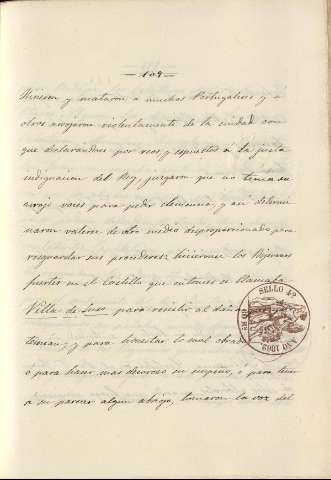 — 109 —
hirieron y mataron a muchos Portugueses y a
otros arrojaron violentamente de la ciudad con
que declarandose por reos y espuestos a la justa
indignacion del Rey, juzgaron que no tenia su
arrojo voces para pedir clemencia, y asi determi
naron valerse de otro medio desproporcionado para
resguardar sus procederes; hicieronse los Bejaranos
fuertes en el Castillo que entonces se llamaba
Villa de para resistir al daño
temian; y para honestar lo mal obrado
o para hacer mas decoroso su empeño, o para tener
a su parecer algun abrigo, tomaron la voz del
SELLO 4º
AÑO 1862